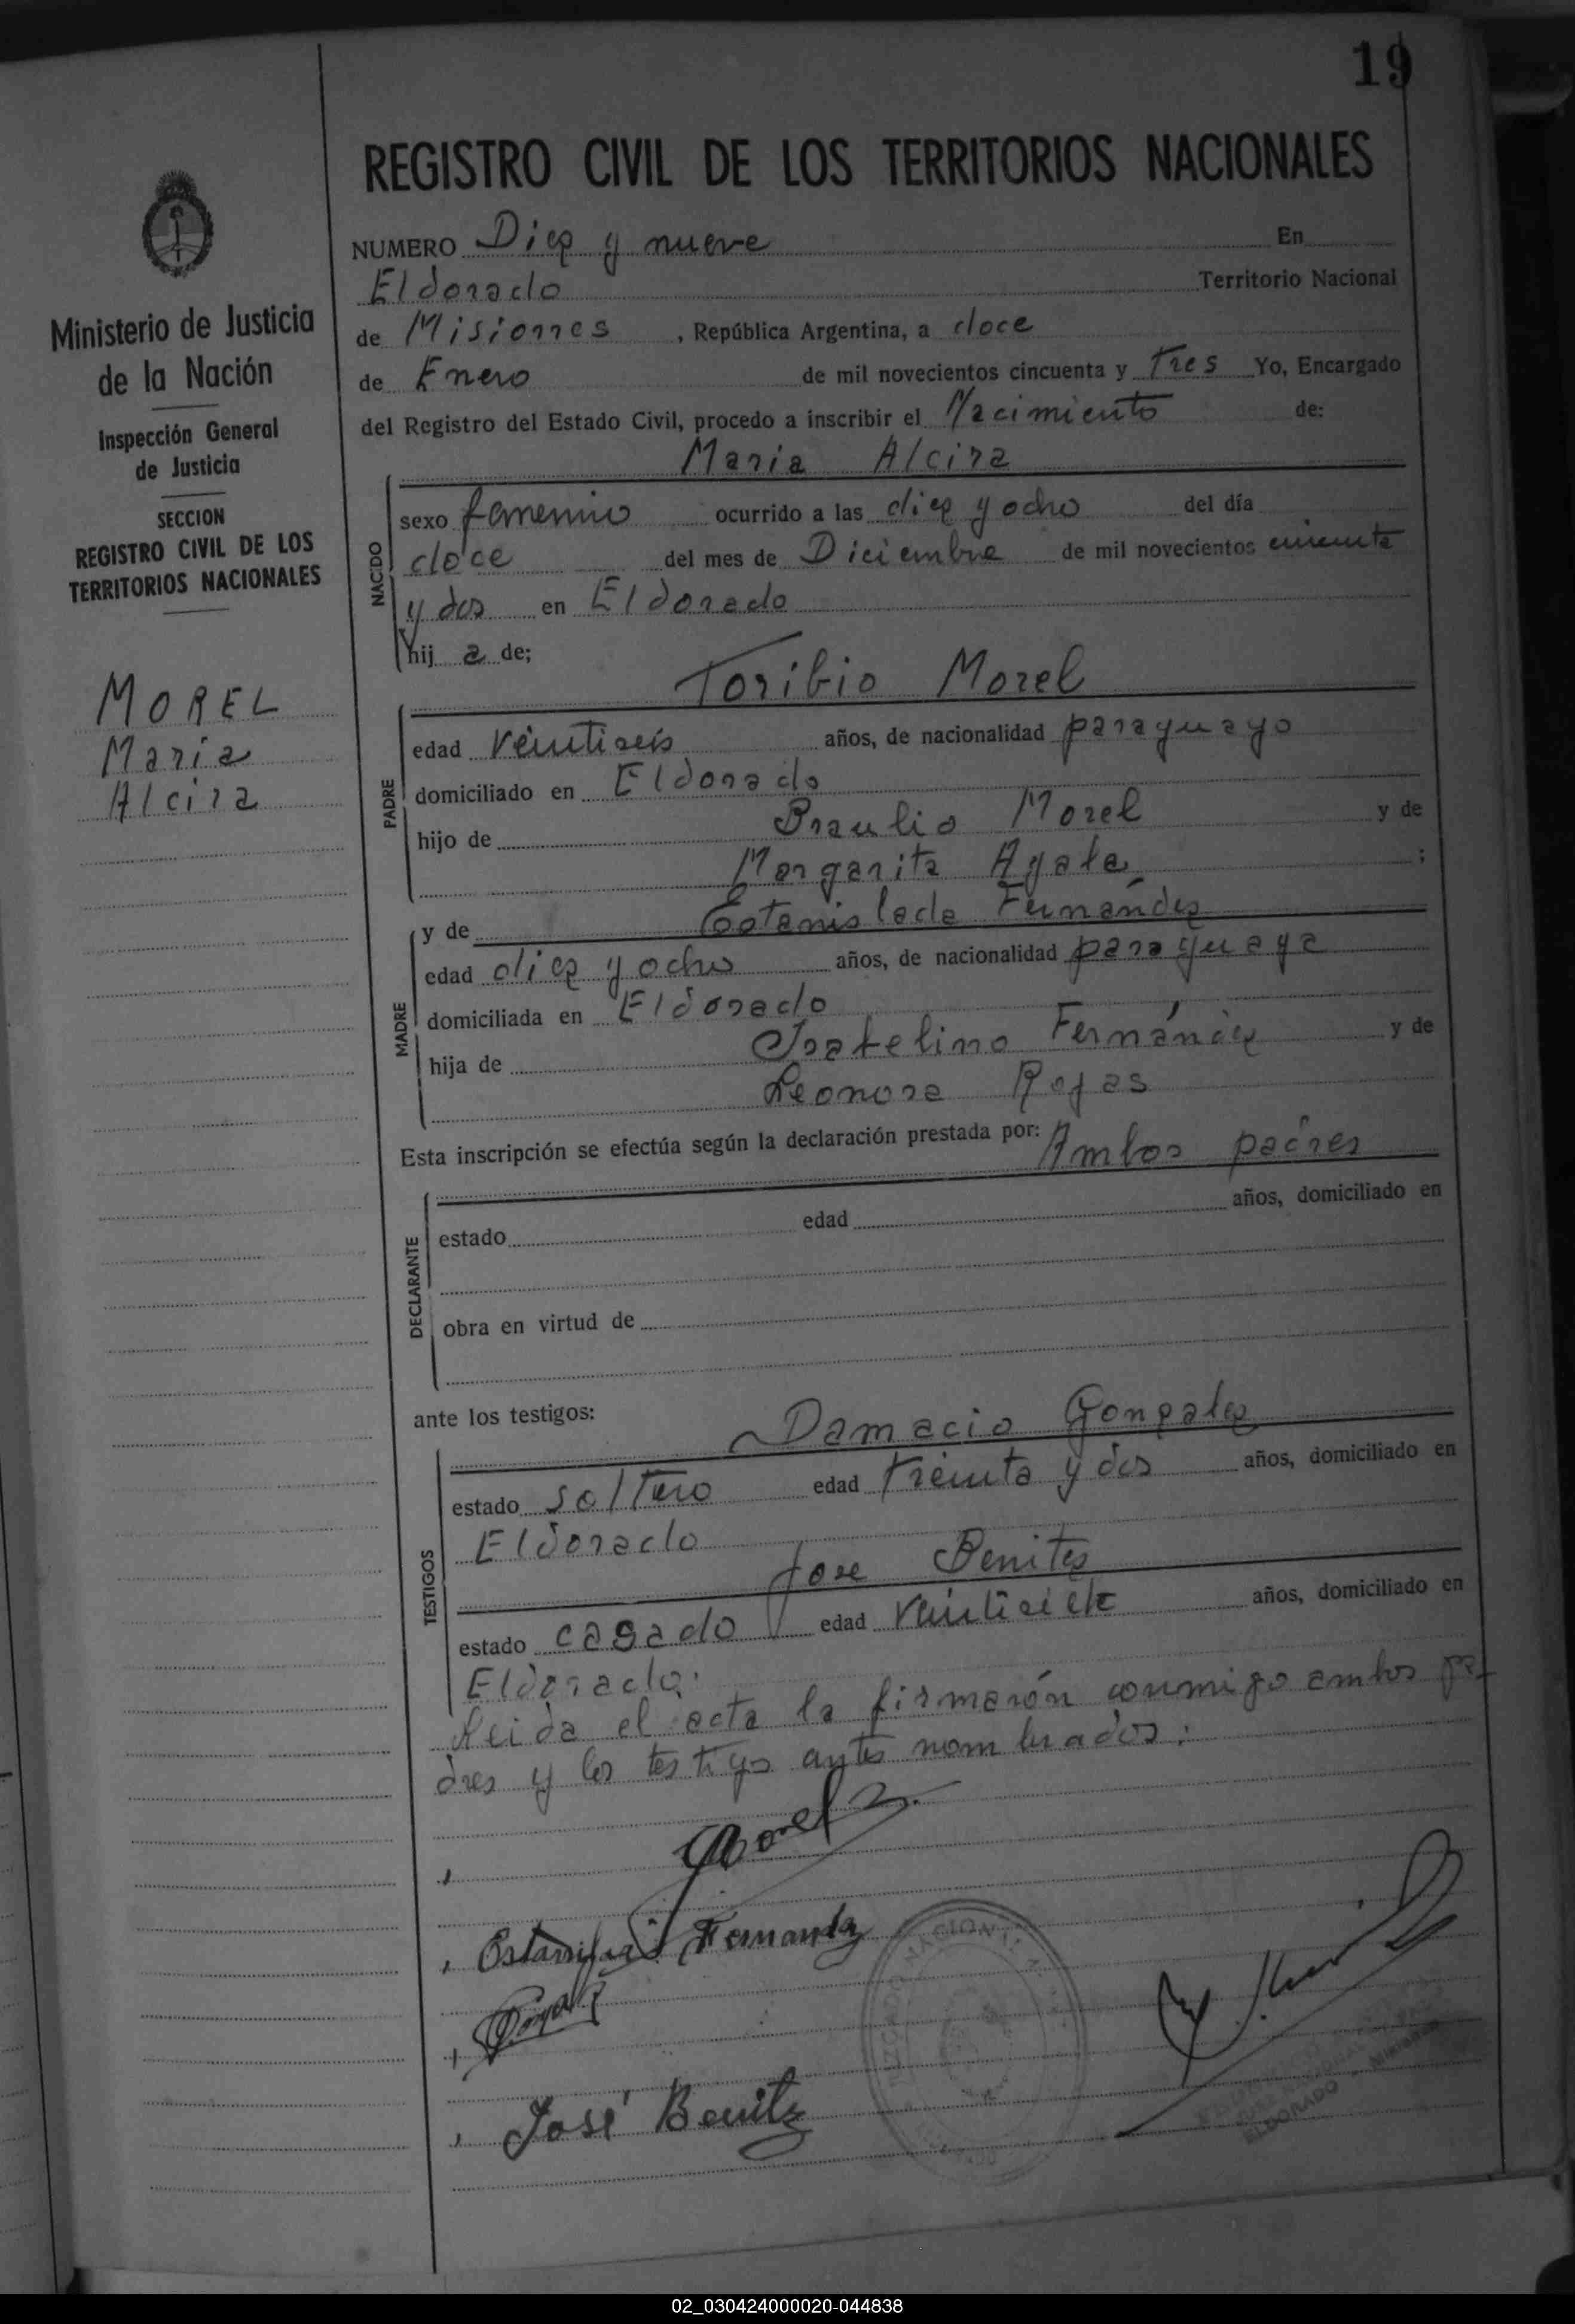 19
REGISTRO CIVIL DE LOS TERRITORIOS NACIONALES
NUMERO Diez y nueve En
Eldorado Territorio Nacional
de Misiones , República Argentina, a doce
de Enero de mil novecientos cincuenta y Tres Yo, Encargado
del Registro del Estado Civil, procedo a inscribir el Nacimiento de:
Maria Alcira
NACIDO
sexo femenino ocurrido a las diez y ocho del día
doce del mes de Diciembre de mil novecientos cincuenta
y dos en Eldorado
hij a de;
Toribio Morel
PADRE
edad veintiseis años, de nacionalidad paraguayo
domiciliado en Eldorado
hijo de Braulio Morel y de
Margarita Ayala ;
MADRE
y de Estanislada Fernández
edad diez y ocho años, de nacionalidad paraguaya
domiciliada en Eldorado
hija de Fernández y de
Leonora Rojas
Esta inscripción se efectúa según la declaración prestada por: Ambos padres
DECLARANTE
estado edad años, domiciliado en
obra en virtud de
ante los testigos:
Damacio Gonzalez
TESTIGOS
estado soltero edad treinta y dos años, domiciliado en
Eldorado
Jose Benitez
estado casado edad veintisiete años, domiciliado en
Eldorado.
Leida el acta la firmarón conmigo ambos pa-
dres y los testigos antes nombrados:
Morel
Fernandez
José Benitz
ELDORADO Misiones
Ministerio de Justicia
de la Nación
Inspección General
de Justicia
SECCION
REGISTRO CIVIL DE LOS
TERRITORIOS NACIONALES
MOREL
Maria
Alcira
02_030424000020-044838